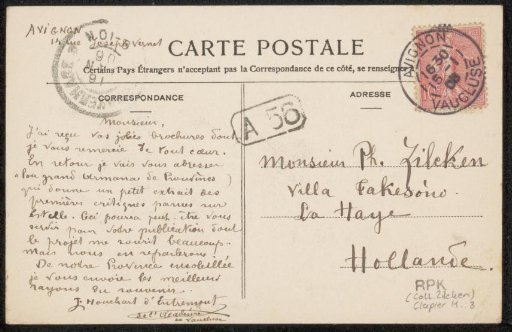 AVIGNON
14 rue Joseph Vernet
CARTE POSTALE
Certains Pays Étrangers n'acceptant pas la Correspondance de ce côté, se renseigner
CORRESPONDANCE
ADRESSE
AVIGNON
16 30
VAUCLUSE
A 56
Monsieur,
J'ai reçu vos jolies brochures dont
je vous remercie de tout cœur.
En retour je vais vous adresser
lou grand Armana de Prouvènço
qui donne un petit extrait des
premières critiques parues sur
Estelle. Ceci pourra peut-être vous
servir pour votre publication dont
le projet me sourit beaucoup.
Mais nous en reparlerons.
De notre Provence ensoleillée
je vous envoie les meilleurs
rayons du souvenir.
J. Houchart d'Entremont
de l'Académie
de Vaucluse
Monsieur Ph. Zilcken
Villa
La Haye
Hollande.
RPK
(Coll. Zilcken)